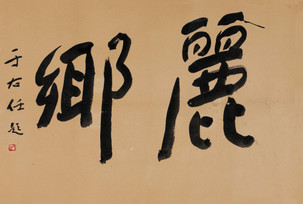 麗鄉
于右任題